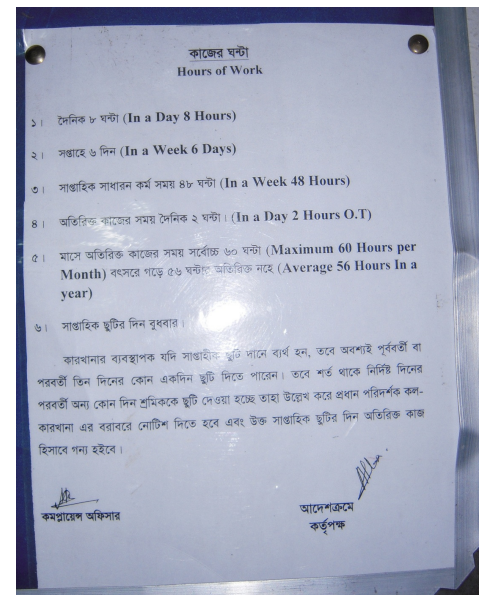 কাজের ঘন্টা
Hours of Work
১। দৈনিক ৮ ঘন্টা (In a Day 8 Hours)
২। সপ্তাহে ৬ দিন (In a Week 6 Days)
৩। সাপ্তাহিক সাধারন কর্ম সময় ৪৮ ঘন্টা (In a Week 48 Hours)
৪। অতিরিক্ত কাজের সময় দৈনিক ২ ঘন্টা। (In a Day 2 Hours O.T)
৫। মাসে অতিরিক্ত কাজের সময় সর্বোচ্চ ৬০ ঘন্টা (Maximum 60 Hours per
Month) বৎসরে গড়ে ৫৬ ঘন্টার অতিরিক্ত নহে (Average 56 Hours In a
year)
৬। সাপ্তাহিক ছুটির দিন বুধবার।
কারখানার ব্যবস্থাপক যদি সাপ্তাহিক ছুটি দানে ব্যর্থ হন, তবে অবশ্যই পূর্ববর্তী বা
পরবর্তী তিন দিনের কোন একদিন ছুটি দিতে পারেন। তবে শর্ত থাকে নির্দিষ্ট দিনের
পরবর্তী অন্য কোন দিন শ্রমিককে ছুটি দেওয়া হচ্ছে তাহা উল্লেখ করে প্রধান পরিদর্শক কল-
কারখানা এর বরাবরে নোটিশ দিতে হবে এবং উক্ত সাপ্তাহিক ছুটির দিন অতিরিক্ত কাজ
হিসাবে গন্য হইবে।
কমপ্লায়েন্স অফিসার
আদেশক্রমে
কর্তৃপক্ষ